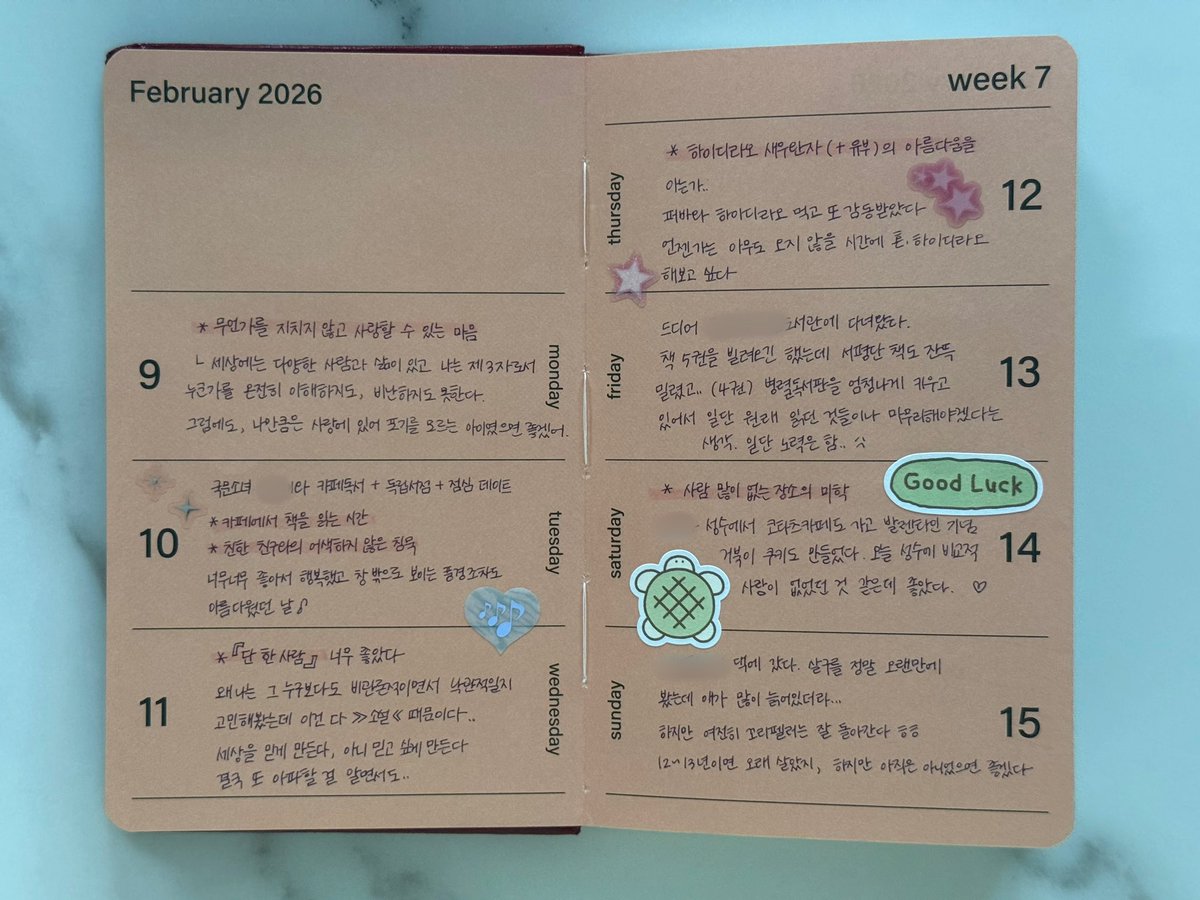 February 2026
9
monday
* 무언가를 지치지 않고 사랑할 수 있는 마음
└ 세상에는 다양한 사람과 삶이 있고 나는 제 3자로서
누군가를 온전히 이해하지도, 비난하지도 못한다.
그럼에도, 나만큼은 사랑에 있어 포기를 모르는 아이였으면 좋겠어.
10
tuesday
국문소녀 라 카페독서 + 독립서점 + 점심 데이트
* 카페에서 책을 읽는 시간
* 친한 친구와의 어색하지 않은 침묵
너무너무 좋아서 행복했고 창 밖으로 보이는 풍경조차도
아름다웠던 날♪
11
wednesday
*『단 한 사람』 너무 좋았다
왜 나는 그 누구보다도 비관론적이면서 낙관적일지
고민해봤는데 이건 다 》소설《 때문이다..
세상을 믿게 만든다, 아니 믿고 싶게 만든다
결국 또 아파할 걸 알면서도..
week 7
thursday
12
* 하이디라오 새우완자 (+ 유부)의 아름다움을
아는가..
퍼바라 하이디라오 먹고 또 감동받았다
언젠가는 아무도 오지 않을 시간에 혼·하이디라오
해보고 싶다
friday
13
드디어 도서관에 다녀왔다.
책 5권을 빌려오긴 했는데 서평단 책도 잔뜩
밀렸고.. (4권) 병렬독서판을 엄청나게 키우고
있어서 일단 원래 읽던 것들이나 마무리해야겠다는
생각. 일단 노력은 함..
saturday
14
* 사람 많이 없는 장소의 미학
성수에서 코타츠카페도 가고 발렌타인 기념
거북이 쿠키도 만들었다. 오늘 성수에 비교적
사람이 없었던 것 같은데 좋았다. ♡
Good Luck
sunday
15
댁에 갔다. 살구를 정말 오랜만에
봤는데 얘가 많이 늙어있더라...
하지만 여전히 꼬리펠러는 잘 돌아간다 ㅎㅎ
12~13년이면 오래 살았지, 하지만 아직은 아니었으면 좋겠다